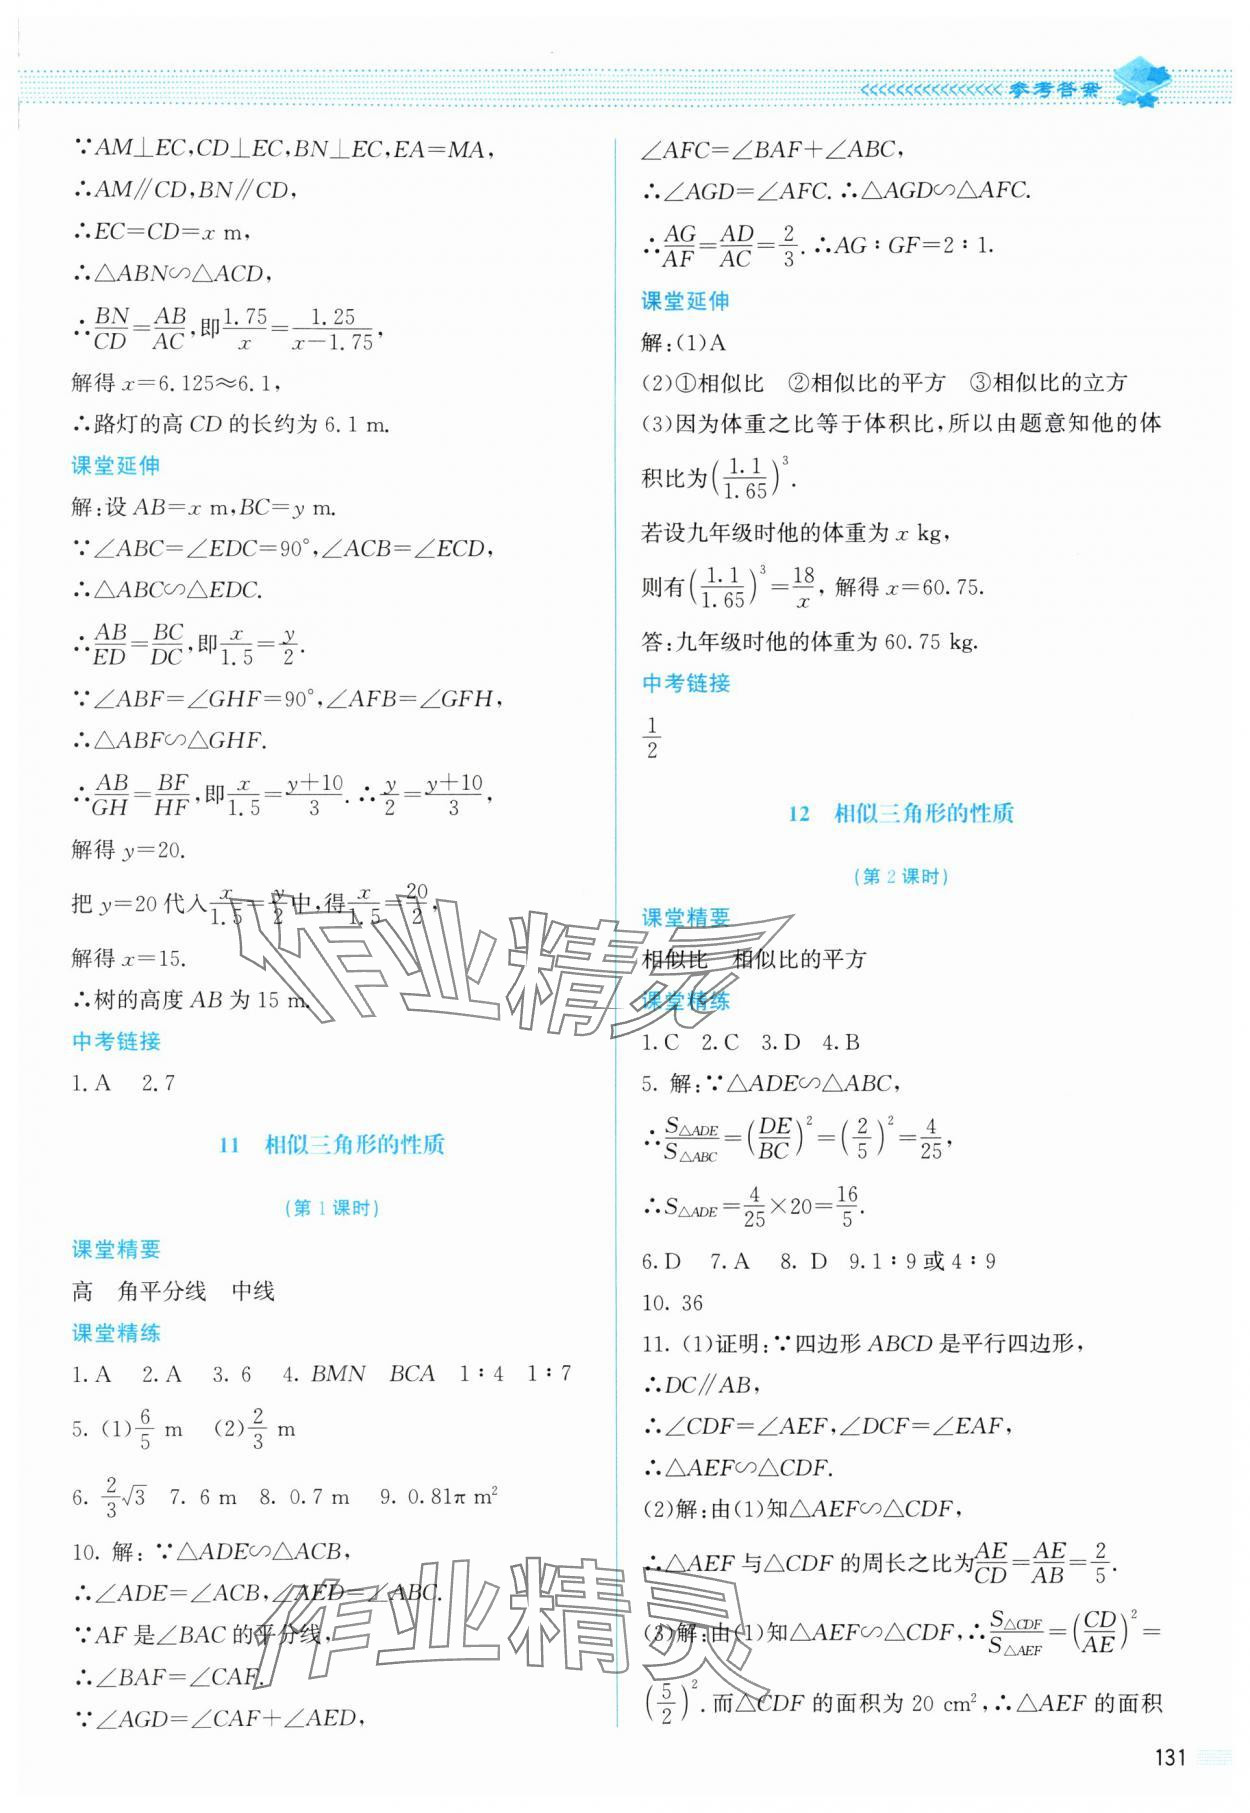 参考答案
∵AM⊥EC,CD⊥EC,BN⊥EC,EA=MA,
∴AM∥CD,BN∥CD,
∴EC=CD=x m,
∴△ABN∽△ACD,
∴BN/CD=AB/AC,即1.75/x=1.25/(x-1.75),
解得 x=6.125≈6.1,
∴路灯的高 CD 的长约为 6.1 m.
课堂延伸
解:设 AB=x m,BC=y m.
∵∠ABC=∠EDC=90°,∠ACB=∠ECD,
∴△ABC∽△EDC.
∴AB/ED=BC/DC,即x/1.5=y/2.
∵∠ABF=∠GHF=90°,∠AFB=∠GFH,
∴△ABF∽△GHF.
∴AB/GH=BF/HF,即x/1.5=(y+10)/3.∴y/2=(y+10)/3,
解得 y=20.
把 y=20 代入x/1.5=y/2中,得x/1.5=20/2,
解得 x=15.
∴树的高度 AB 为 15 m.
中考链接
1. A 2.7
11 相似三角形的性质
(第 1 课时)
课堂精要
高 角平分线 中线
课堂精练
1. A 2. A 3. 6 4. BMN BCA 1∶4 1∶7
5. (1)6/5 m (2)2/3 m
6. 2/3√3 7. 6 m 8. 0.7 m 9. 0.81π m²
10. 解:∵△ADE∽△ACB,
∴∠ADE=∠ACB,∠AED=∠ABC.
∵AF 是∠BAC 的平分线,
∴∠BAF=∠CAF.
∵∠AGD=∠CAF+∠AED,
∠AFC=∠BAF+∠ABC,
∴∠AGD=∠AFC.∴△AGD∽△AFC.
∴AG/AF=AD/AC=2/3.∴AG∶GF=2∶1.
课堂延伸
解:(1)A
(2)①相似比 ②相似比的平方 ③相似比的立方
(3)因为体重之比等于体积比,所以由题意知他的体
积比为(1.1/1.65)³.
若设九年级时他的体重为 x kg,
则有(1.1/1.65)³=18/x,解得 x=60.75.
答:九年级时他的体重为 60.75 kg.
中考链接
1/2
12 相似三角形的性质
(第 2 课时)
课堂精要
相似比 相似比的平方
课堂精练
1. C 2. C 3. D 4. B
5. 解:∵△ADE∽△ABC,
∴S△ADE/S△ABC=(DE/BC)²=(2/5)²=4/25,
∴S△ADE=4/25×20=16/5.
6. D 7. A 8. D 9. 1∶9 或 4∶9
10. 36
11. (1)证明:∵四边形 ABCD 是平行四边形,
∴DC∥AB,
∴∠CDF=∠AEF,∠DCF=∠EAF,
∴△AEF∽△CDF.
(2)解:由(1)知△AEF∽△CDF,
∴△AEF 与△CDF 的周长之比为AE/CD=AE/AB=2/5.
(3)解:由(1)知△AEF∽△CDF,∴S△CDF/S△AEF=(CD/AE)²=
(5/2)².而△CDF 的面积为 20 cm²,∴△AEF 的面积
131
作业精灵
作业精灵